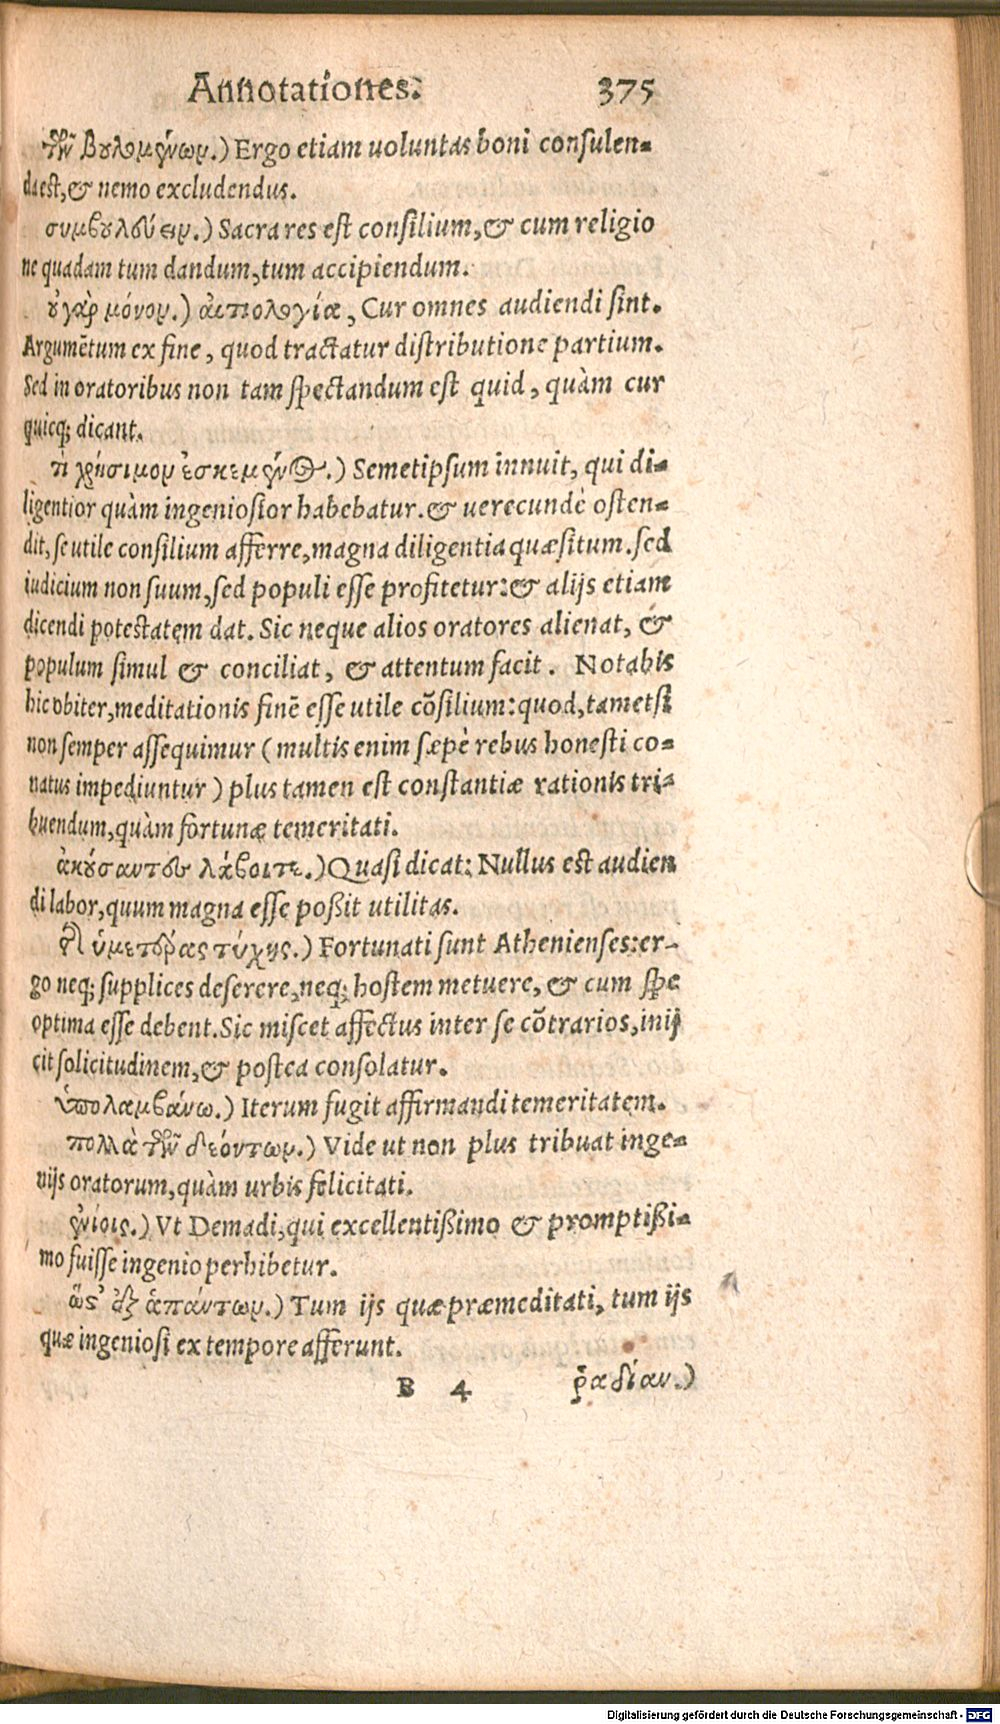 Annotationes. 375
τῶν βουλομένων.) Ergo etiam uoluntas boni consulen-
da est, & nemo excludendus.
συμβουλεύειν.) Sacra res est consilium, & cum religio
ne quadam tum dandum, tum accipiendum.
οὐ γὰρ μόνον.) ἀιτιολογία, Cur omnes audiendi sint.
Argumẽtum ex fine, quod tractatur distributione partium.
Sed in oratoribus non tam spectandum est quid, quàm cur
quicq; dicant.
τὶ χρήσιμον ἐσκεμένος.) Semetipsum innuit, qui di-
ligentior quàm ingeniosior habebatur. & uerecundè osten-
dit, se utile consilium afferre, magna diligentia quæsitum. sed
iudicium non suum, sed populi esse profitetur: & alijs etiam
dicendi potestatem dat. Sic neque alios oratores alienat, &
populum simul & conciliat, & attentum facit. Notabis
hic obiter, meditationis finẽ esse utile cõsilium: quod, tametsi
non semper assequimur (multis enim sæpè rebus honesti co-
natus impediuntur) plus tamen est constantiæ rationis tri-
buendum, quàm fortunæ temeritati.
ἀκούσαντες λάβοιτε.) Quasi dicat: Nullus est audien
di labor, quum magna esse poßit utilitas.
τῆς ὑμετέρας τύχης.) Fortunati sunt Athenienses: er-
go neq; supplices deserere, neq; hostem metuere, & cum spe
optima esse debent. Sic miscet affectus inter se cõtrarios, inij
cit solicitudinem, & postea consolatur.
ὑπολαμβάνω.) Iterum fugit affirmandi temeritatem.
πολλὰ τῶν δεόντων.) Vide ut non plus tribuat inge-
nijs oratorum, quàm urbis felicitati.
ἐνίοις.) Vt Demadi, qui excellentißimo & promptißi-
mo fuisse ingenio perhibetur.
ὥστ' ἐξ ἁπάντων.) Tum ijs quæ præmeditati, tum ijs
quæ ingeniosi ex tempore afferunt.
B 4 ῥᾳδίαν.)
Digitalisierung gefördert durch die Deutsche Forschungsgemeinschaft - DFG